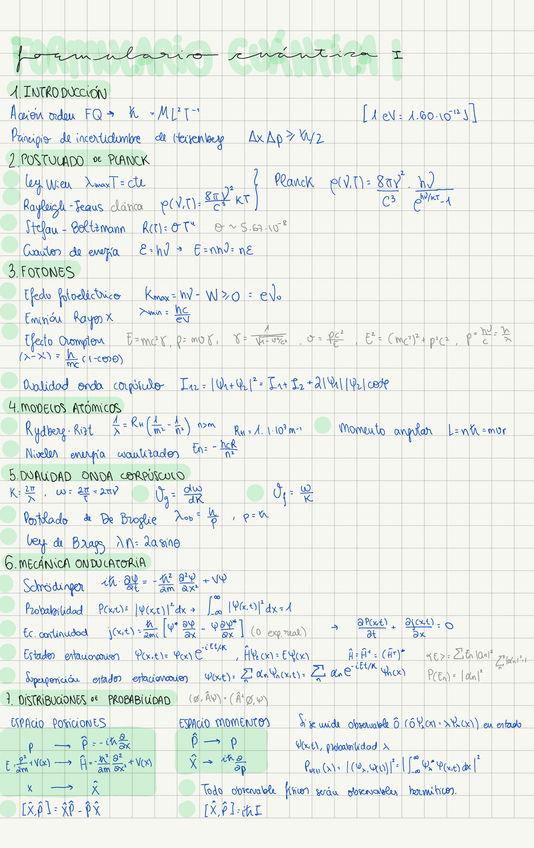 formulario cuántica I
1. INTRODUCCIÓN
Acción orden FQ → ħ ~ ML²T⁻¹ [1 eV = 1.60·10⁻¹² J]
Principio de incertidumbre de Heisenberg Δx Δp ≥ ħ/2
2. POSTULADO DE PLANCK
Ley Wien λmax T = cte
Rayleigh-Jeans clásica ρ(ν,T) = 8πν²/c³ KT } Planck ρ(ν,T) = 8πν²/c³ · hν/(e^(hν/KT) - 1)
Stefan - Boltzmann R(T) = σT⁴ σ ~ 5.67·10⁻⁸
Cuantos de energía ε = hν → E = nhν = nε
3. FOTONES
Efecto fotoeléctrico Kmax = hν - W ≥ 0 = eV₀
Emisión Rayos X λmin = hc/eV
Efecto Crompton E = mc²γ, p = mvγ, γ = 1/√(1-v²/c²), v = pc²/E, E² = (mc²)² + p²c², p = hν/c = h/λ
(λ-λ') = h/mc (1-cosθ)
Dualidad onda corpúsculo I₁₂ = |ψ₁+ψ₂|² = I₁ + I₂ + 2|ψ₁||ψ₂|cosφ
4. MODELOS ATÓMICOS
Rydberg-Rizt 1/λ = R_H (1/m² - 1/n²) n>m R_H = 1.1·10⁷ m⁻¹ Momento angular L = nħ = mvr
Niveles energía cuantizados En = - hcR/n²
5. DUALIDAD ONDA CORPÚSCULO
K = 2π/λ, ω = 2π/T = 2πν Vg = dω/dK Vf = ω/K
Postulado de De Broglie λ_DB = h/p, p = ħ
Ley de Bragg λn = 2a sinθ
6. MECÁNICA ONDULATORIA
Schrödinger iħ · ∂ψ/∂t = - ħ²/2m ∂²ψ/∂x² + Vψ
Probabilidad P(x,t) = |ψ(x,t)|² dx → ∫_{-∞}^{∞} |ψ(x,t)|² dx = 1
Ec. continuidad j(x,t) = ħ/2mi [ψ* ∂ψ/∂x - ψ ∂ψ*/∂x] (0 exp. real) → ∂P(x,t)/∂t + ∂j(x,t)/∂x = 0
Estados estacionarios ψ(x,t) = φ(x) e^(-iEt/ħ), Ĥψ(x) = Eψ(x) Ĥ = Ĥ⁺ = (Ĥᵀ)* <E> = ∑ En |αn|² ∑|αn|² = 1
Superposición estados estacionarios ψ(x,t) = ∑n αn ψn(x,t) = ∑n αn e^(-iEt/ħ) ψn(x) P(En) = |αn|²
7. DISTRIBUCIONES DE PROBABILIDAD (Ø,Âψ) = (Â⁺Ø,ψ)
ESPACIO POSICIONES ESPACIO MOMENTOS Si se mide observable ô (ôψλ(x) = λψλ(x)) en estado
p → P̂ = -iħ ∂/∂x P̂ → p ψ(x,t), probabilidad λ
E = p²/2m + V(x) → Ĥ = - ħ²/2m ∂²/∂x² + V(x) X̂ → iħ ∂/∂p |(ψλ, ψ(t))|² = |∫_{-∞}^{∞} ψλ* ψ(x,t) dx|²
x → X̂ Todo observable físicos serán observables hermíticos.
[X̂,P̂] = X̂P̂ - P̂X̂ [X̂,P̂] = iħI